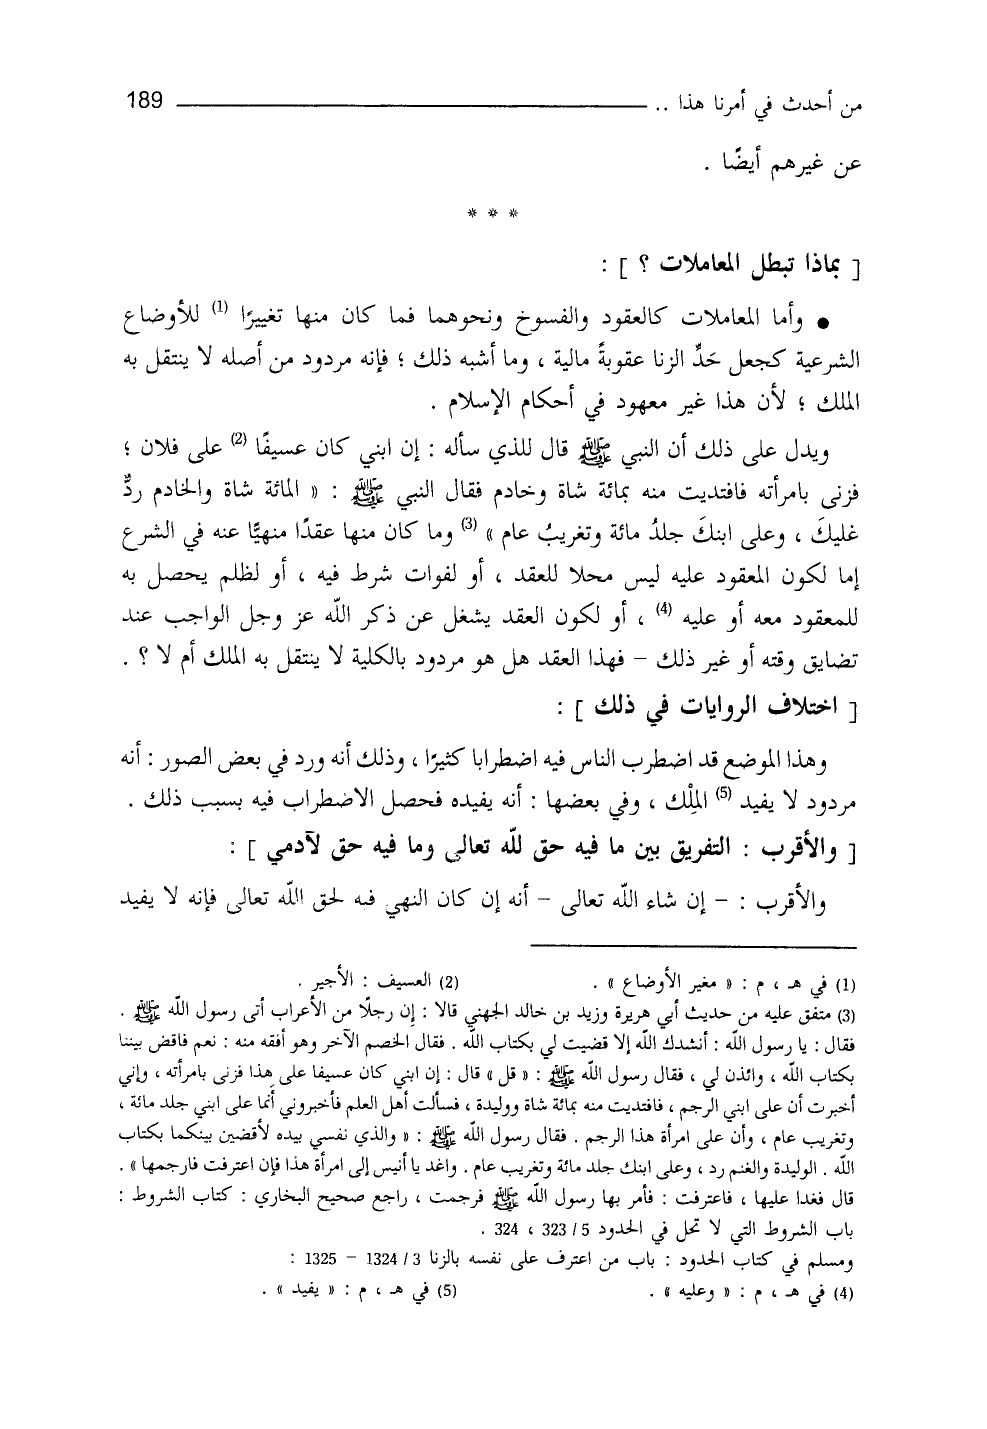 من أحدث في أمرنا هذا .. 189
عن غيرهم أيضًا .
* * *
[ بماذا تبطل المعاملات ؟ ] :
● وأما المعاملات كالعقود والفسوخ ونحوهما فما كان منها تغييرًا (1) للأوضاع
الشرعية كجعل حَدِّ الزنا عقوبةً مالية ، وما أشبه ذلك ؛ فإنه مردود من أصله لا ينتقل به
الملك ؛ لأن هذا غير معهود في أحكام الإسلام .
ويدل على ذلك أن النبي ﷺ قال للذي سأله : إن ابني كان عسيفًا (2) على فلان ؛
فزنى بامرأته فافتديت منه بمائة شاة وخادم فقال النبي ﷺ : « المائة شاة والخادم ردٌّ
غليكَ ، وعلى ابنكَ جلدُ مائة وتغريبُ عام » (3) وما كان منها عقدًا منهيًّا عنه في الشرع
إما لكون المعقود عليه ليس محلا للعقد ، أو لفوات شرط فيه ، أو لظلم يحصل به
للمعقود معه أو عليه (4) ، أو لكون العقد يشغل عن ذكر الله عز وجل الواجب عند
تضايق وقته أو غير ذلك – فهذا العقد هل هو مردود بالكلية لا ينتقل به الملك أم لا ؟ .
[ اختلاف الروايات في ذلك ] :
وهذا الموضع قد اضطرب الناس فيه اضطرابا كثيرًا ، وذلك أنه ورد في بعض الصور : أنه
مردود لا يفيد (5) المِلْك ، وفي بعضها : أنه يفيده فحصل الاضطراب فيه بسبب ذلك .
[ والأقرب : التفريق بين ما فيه حق لله تعالى وما فيه حق لآدمي ] :
والأقرب : – إن شاء الله تعالى – أنه إن كان النهي فيه لحق الله تعالى فإنه لا يفيد
(1) في هـ ، م : « مغير الأوضاع » . (2) العسيف : الأجير .
(3) متفق عليه من حديث أبي هريرة وزيد بن خالد الجهني قالا : إن رجلًا من الأعراب أتى رسول الله ﷺ .
فقال : يا رسول الله : أنشدك الله إلا قضيت لي بكتاب الله . فقال الخصم الآخر وهو أفقه منه : نعم فاقض بيننا
بكتاب الله ، وائذن لي ، فقال رسول الله ﷺ : « قل » قال : إن ابني كان عسيفا على هذا فزنى بامرأته ، وإني
أخبرت أن على ابني الرجم ، فافتديت منه بمائة شاة ووليدة ، فسألت أهل العلم فأخبروني أنما على ابني جلد مائة ،
وتغريب عام ، وأن على امرأة هذا الرجم . فقال رسول الله ﷺ : « والذي نفسي بيده لأقضين بينكما بكتاب
الله . الوليدة والغنم رد ، وعلى ابنك جلد مائة وتغريب عام . واغد يا أنيس إلى امرأة هذا فإن اعترفت فارجمها » .
قال فغدا عليها ، فاعترفت : فأمر بها رسول الله ﷺ فرجمت ، راجع صحيح البخاري : كتاب الشروط :
باب الشروط التي لا تحل في الحدود 5 / 323 ، 324 .
ومسلم في كتاب الحدود : باب من اعترف على نفسه بالزنا 3 / 1324 – 1325 :
(4) في هـ ، م : « وعليه » . (5) في هـ ، م : « يفيد » .